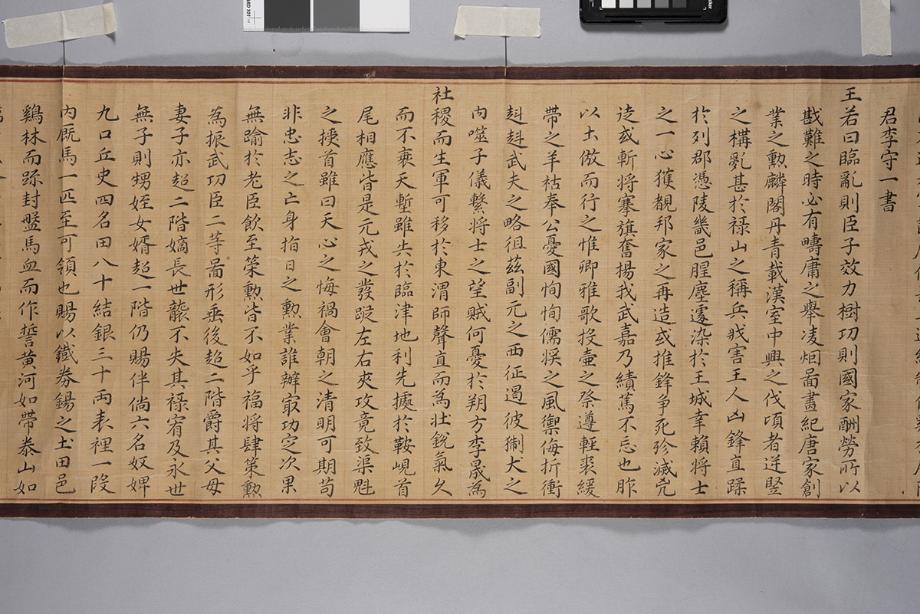 君李守一書
王若曰臨亂則臣子效力樹功則國家酬勞所以
戡難之時必有疇庸之舉凌烟啚畫紀唐家創
業之勳麟閣丹青載漢室中興之伐頃者迕竪
之構亂甚於祿山之稱兵戕害王人凶鋒直蹂
於列郡憑陵畿邑腥塵遽染於王城幸賴將士
之一心獲覩邦家之再造或推鋒爭死殄滅兇
徒或斬將搴旗奮揚我武嘉乃績篤不忘也胙
以土倣而行之惟卿雅歌投壺之祭遵輕裘緩
帶之羊祜奉公憂國恂恂儒將之風禦侮折衝
赳赳武夫之略徂玆副元之西征過彼猘犬之
內噬子儀繫將士之望賊何憂於朔方李晟為
社稷而生軍可移於東渭師聲直而為壯銳氣久
而不衰天塹雖共於臨津地利先據於鞍峴首
尾相應皆是元戎之發蹤左右夾攻竟致渠魁
之授首雖曰天心之悔禍會朝之清明可期苟
非忠志之亡身指日之勳業誰辦㝡功定次果
無踰於老臣飲至策勳皆不如乎福將肆策勳
為振武功臣二等啚形垂後超二階爵其父母
妻子亦超二階嫡長世襲不失其祿宥及永世
無子則甥姪女婿超一階仍賜伴倘六名奴婢
九口丘史四名田八十結銀三十兩表裡一段
內厩馬一匹至可領也賜以鐵券錫之土田邑
鷄林而疏封盤馬血而作誓黃河如帶泰山如